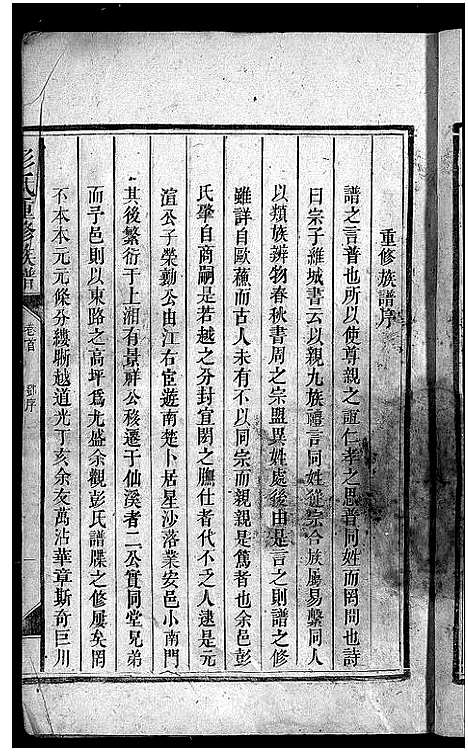 重修族譜序
譜之言普也所以使尊親之誼仁孝之思普同姓而罔間也詩
曰宗子維城書云以親九族禮言同姓從宗合族屬易繫同人
以類族辨物春秋書周之宗盟異姓處後由是言之則譜之修
雖詳自歐蘇而古人未有不以同宗而親親是篤者也余邑彭
氏肇自商嗣是若越之分封宜閎之膴仕者代不之人逮是元
渲公子榮勳公由江右宦遊南楚卜居星沙落業安邑小南門
其後繁衍于上湘有景祥公移遷于仙溪者二公實同堂兄弟
而予邑則以東路之高坪爲尤盛余觀彭氏譜牒之修屢矣罔
不本本元元條分縷晰越道光丁亥余友萬沾華章斯奇巨川
彭氏重修族譜
卷首
鄧序
一